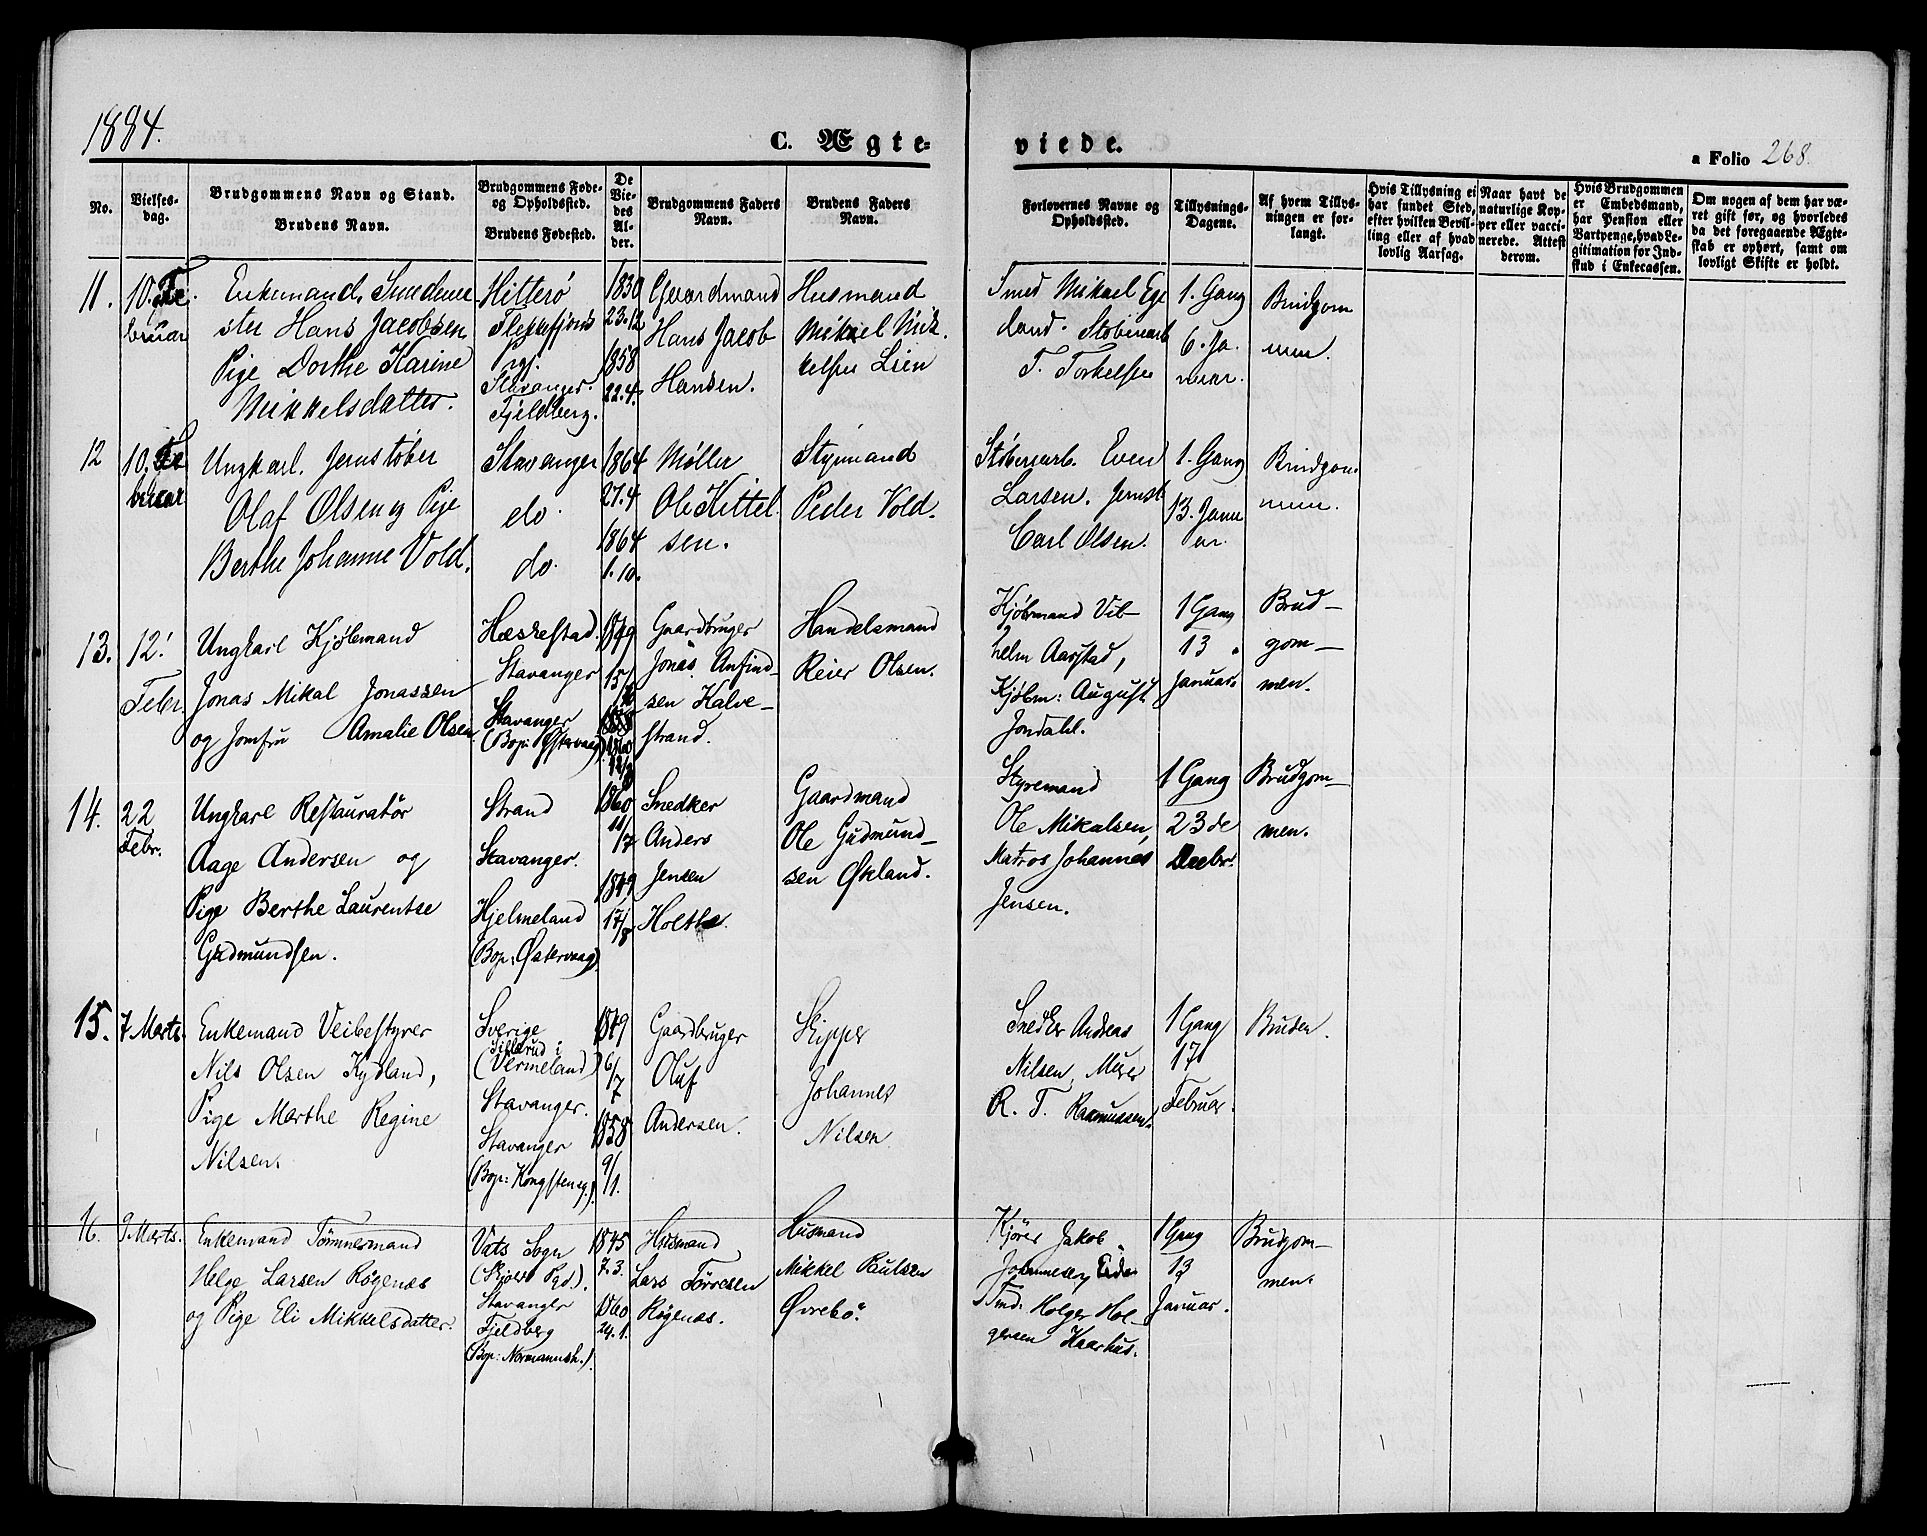 1884.
C. Ægte=
viede.
a Folio 268.
No.
Vielses-
dag.
Brudgommens Navn og Stand.
Brudens Navn.
Brudgommens Føde-
og Opholdssted.
Brudens Fødested.
De
Vie-
des
Al-
der.
Brudgommens Faders
Navn.
Brudens Faders
Navn.
Forlovernes Navne og
Opholdssted.
Tillysnings-
Dagene.
Af hvem Tillys-
ningen er for-
langt.
Hvis Tillysning ei
har fundet Sted,
efter hvilken Bevil-
ling eller af hvad
lovlig Aarsag.
Naar havt de
naturlige Kop-
per eller vacci-
nerede. Attest
derom.
Hvis Brudgommen
er Embedsmand,
har Pension eller
Vartpenge, hvad Le-
gitimation for Ind-
skud i Enkecassen.
Om nogen af dem har væ-
ret gift før, og hvorledes
da det foregaaende Ægte-
skab er ophørt, samt om
lovligt Skifte er holdt.
11.
10. Fe
bruar
Enkemand,
Hans Jacobsen
Pige Dorthe Karine
Mikkelsdatter.
Hitterø
Flekkefjords
Pgj.
Stavanger.
Fjeldberg.
1830
23.12
1858
22.4.
Gaardmand
Hans Jacob
Hansen.
Husmand
Mikkel Mik
kelsen Lien
Smed Mikael Ege
land. Støberiarb
T. Torkelsen
1. Gang
6. Ja
nuar.
Brudgom
men.
12
10. Fe
bruar
Ungkarl. Jernstøber
Olaf Olsen og Pige
Berthe Johanne Vold.
Stavanger
do.
do.
1864
27.4
1864
1.10.
Møller
Ole Kittel
sen.
Styrmand
Peder Vold.
Støberiarb. Even
Larsen. Jernst
Carl Olsen.
1. Gang
13. Janu
ar.
Brudgom
men.
13.
12.
Febr.
Ungkarl Kjøbmand
Jonas Mikal Jonassen
og Jomfru Amalie Olsen
Hæskestad.
Stavanger
Stavanger
(Bop: Østervaag)
1849
15/
1860
12/
Gaardbruger
Jonas Anfind-
sen Kalve-
strand.
Handelsmand
Reier Olsen.
Kjøbmand Vil-
helm Aarstad,
Kjøbm: August
Jondahl.
1 Gang
13
Januar.
Brud-
gom-
men.
14.
22
Febr.
Ungkarl Restauratør
Aage Andersen og
Pige Berthe Laurentse
Gudmundsen.
Strand
Stavanger.
Hjelmeland
(Bop: Østervaag)
1860
11/7
1849
17/8
Snedker
Anders
Jensen
Holthe.
Gaardmand
Ole Gudmund-
sen Økland.
Styremand
Ole Mikalsen,
Matros Johannes
Jensen.
1 Gang
23de
Decbr.
Brudgom-
men.
15.
7 Marts.
Enkemand Veibestyrer
Nils Olsen Kydland,
Pige Marthe Regine
Nilsen.
Sverige
Sillerud i
(Vermeland)
Stavanger.
Stavanger
(Bop: Kongstensg.).
1849
6/7
1858
9/1.
Gaardbruger
Oluf
Andersen.
Skipper
Johannes
Nilsen
Snedker Andreas
Nilsen, Murer
R. T. Rasmussen.
1 Gang
17
Februar.
Bruden.
16.
9 Marts.
Enkemand Tømmermand
Helge Larsen Røgenæs
og Pige Eli Mikkelsdatter.
Vats Sogn
(Skjold Pgd.).
Stavanger
Fjeldberg
(Bop: Normannsh.).
1845
7.3.
1860
24.1.
Husmand
Lars Tørresen
Røgenæs.
Husmand
Mikkel Paulsen
Øvrebø.
Kjører Jakob
Johannesen Eide
Tmd: Holger Hol-
gersen Haarhus.
1 Gang
13
Januar.
Brudgom-
men.